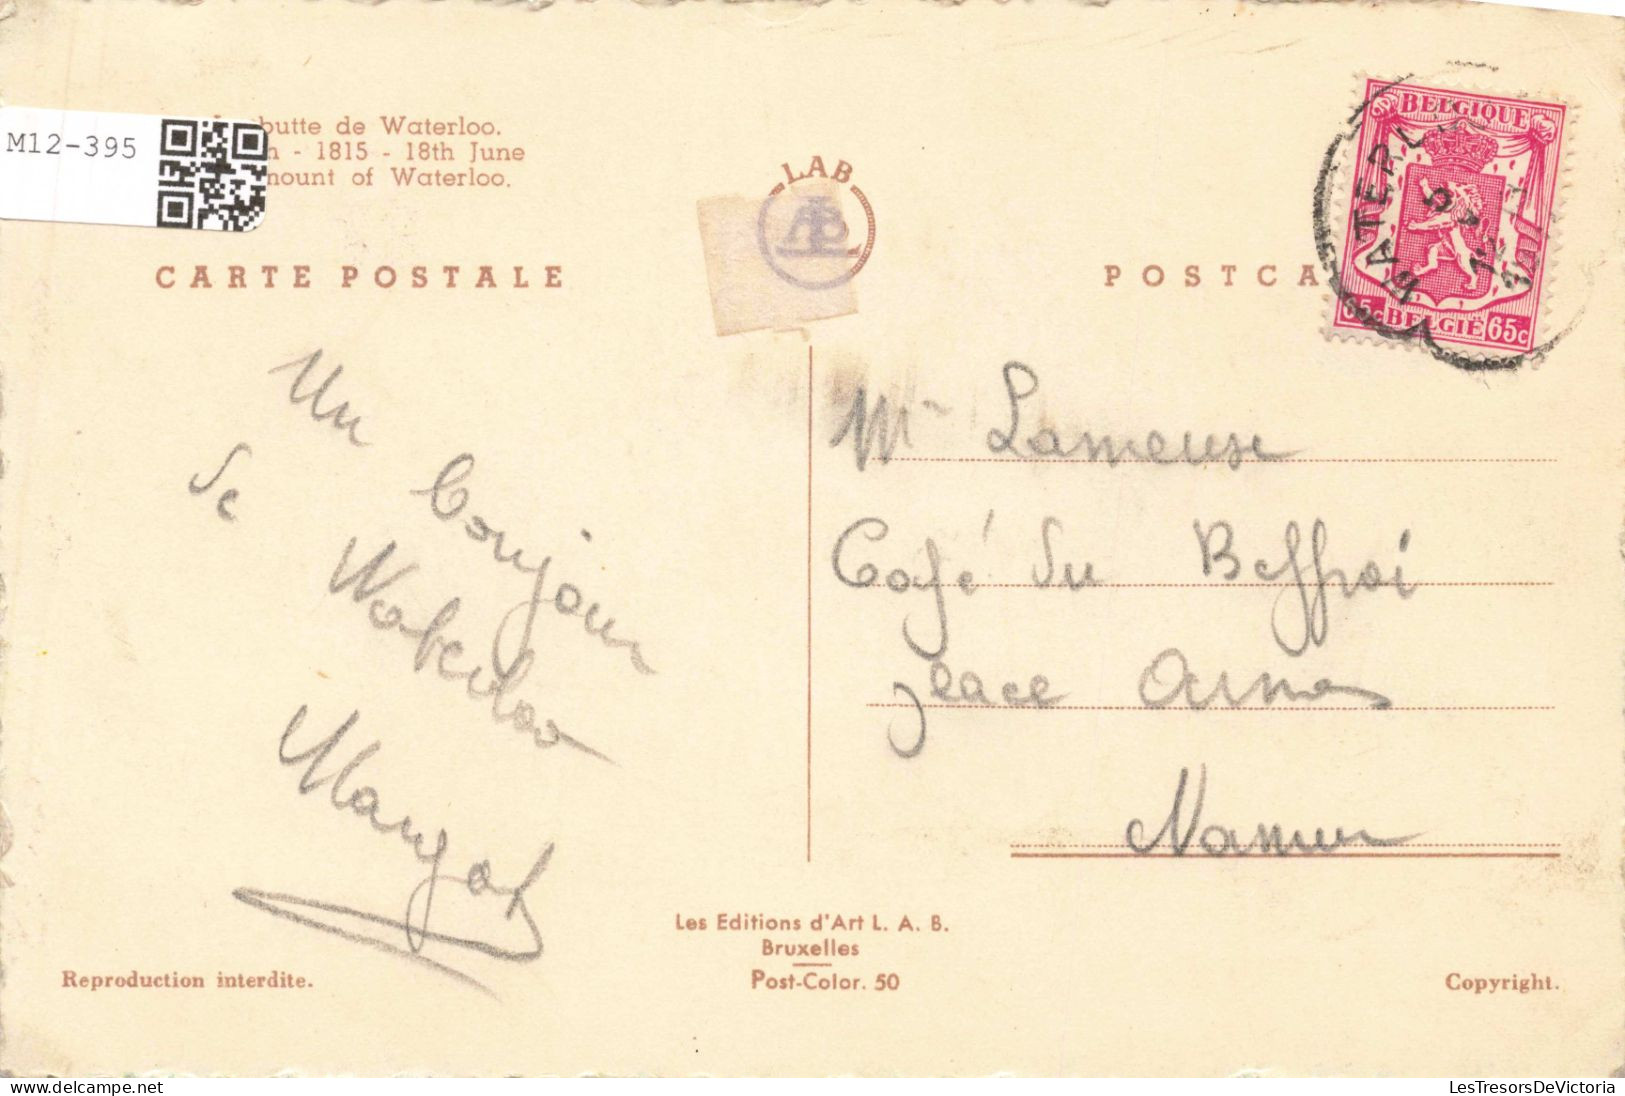 M12-395
butte de Waterloo.
- 1815 - 18th June
mount of Waterloo.
LAB
CARTE POSTALE
POSTCA
BELGIQUE
65c BELGIË 65c
WATERLO
Un bonjour
de Waterloo
Margot
Mr Lameuse
Café du Beffroi
place Armes
Namur
Les Editions d'Art L. A. B.
Bruxelles
Post-Color. 50
Reproduction interdite.
Copyright.
LesTresorsDeVictoria